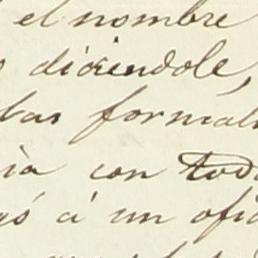 el nombre
diciendole,
las formal
ia con toda
gó á un ofi